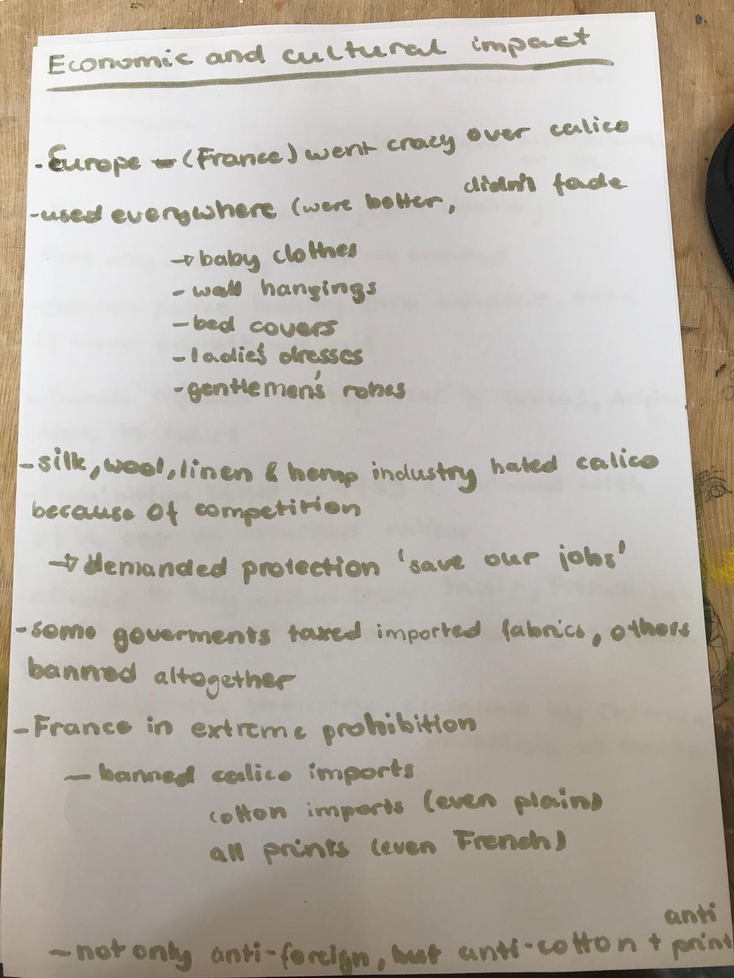 Economic and cultural impact
- Europe - (France) went crazy over calico
- used everywhere (were better, didn't fade
→ baby clothes
- wall hangings
- bed covers
- ladie's dresses
- gentlemen's robes
- silk, wool, linen & hemp industry hated calico
because of competition
→ demanded protection 'save our jobs'
- some goverments taxed imported fabrics, others
banned altogether
- France in extreme prohibition
- banned calico imports
cotton imports (even plain)
all prints (even French)
- not only anti-foreign, but anti-cotton + anti print